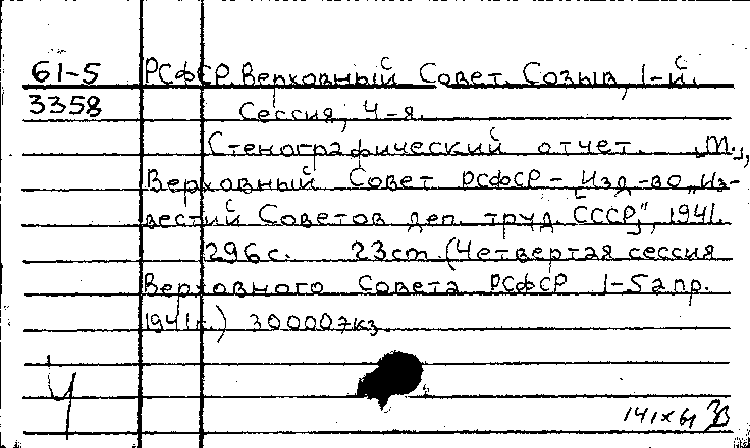 61-5 РСФСР. Верховный Совет. Созыв, 1-й.
3358 Сессия, 4-я.
Стенографический отчет. „М.„,
Верховный Совет РСФСР - „Изд-во „Из-
вестий Советов деп. труд. СССР„", 1941.
296 с. 23 cm. (Четвертая сессия
Верховного Совета РСФСР 1-5 апр.
1941 г.) 30000 экз.
4
141 x 61